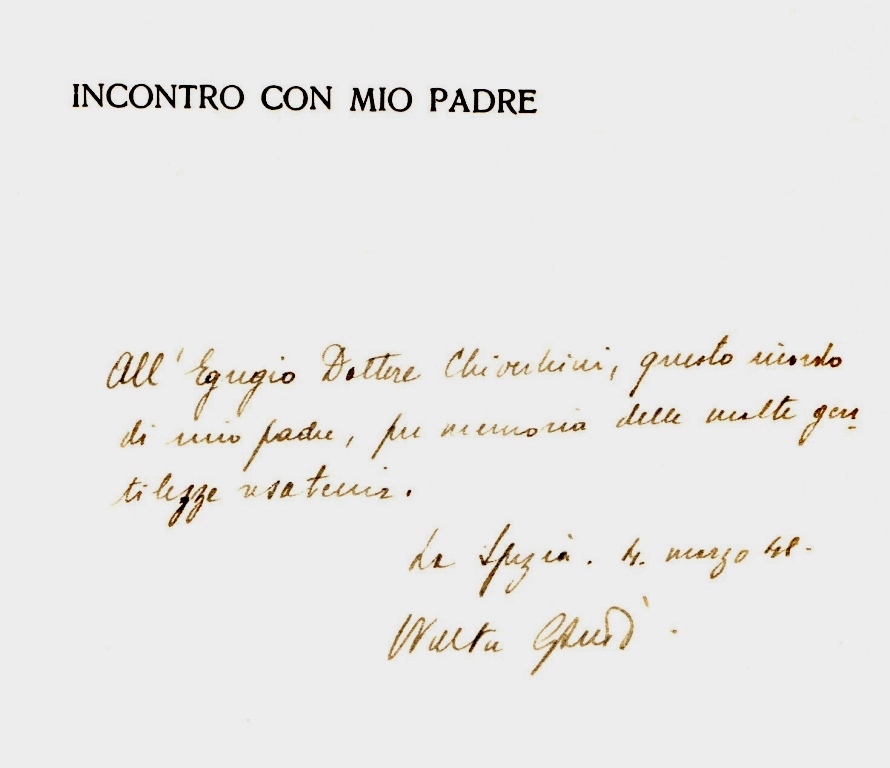 INCONTRO CON MIO PADRE
All' Egregio Dottore questo ricordo
di mio padre, per memoria delle molte gen=
tilezze usatemi.
La Spezia. 4. marzo 48.
Walter